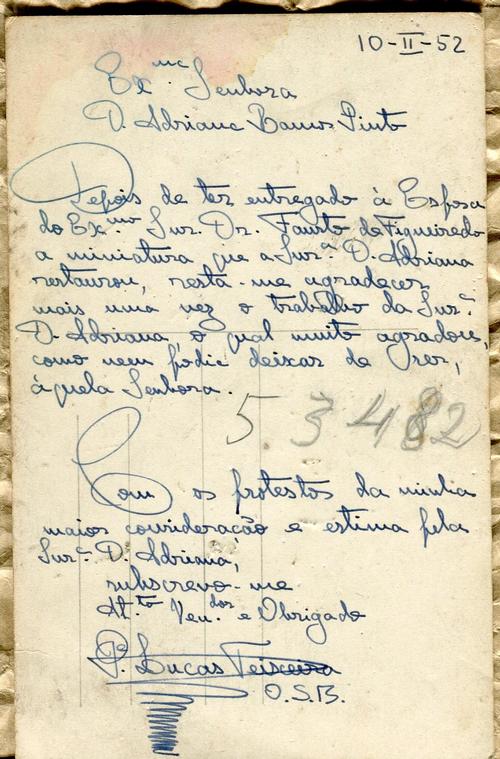 10-II-52
Ex.ma Senhora
D. Adriana Barros Pinto
Depois de ter entregado à Esposa
do Ex.mo Snr. Dr. Fausto de Figueiredo
a miniatura que a Snr.ª D. Adriana
restaurou, resta-me agradecer
mais uma vez o trabalho da Snr.ª
D. Adriana, o qual muito agradou,
como nem podia deixar de ser,
àquela Senhora.
5 3 4 8 2
Com os protestos da minha
maior consideração e estima pela
Snr.ª D. Adriana,
subscrevo-me
At.to Ven.dor e Obrigado
P.e Lucas Teixeira
O.S.B.